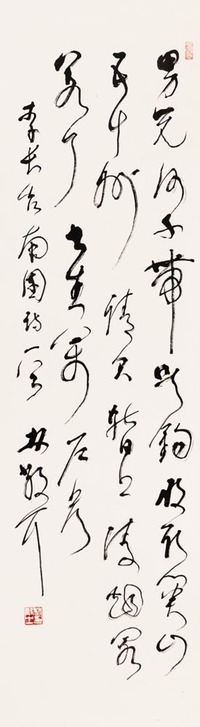 男兒何不帶吳鉤收取關山
五十州請君暫上凌煙閣
若个書生萬戶侯
李長吉南園詩一首 林散耳